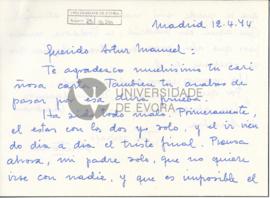 UNIVERSIDADE DE ÉVORA
Madrid 12.4.74
Querido Artur Manuel:
Te agradezco muchísimo tu cari
ñosa carta. También tu acabas de
pasar por esa dura prueba.
Ha sido todo malo. Primeramente,
el estar con los dos yo solo, y el ir vien
do dia a dia el triste final. Piensa
ahora, mi padre solo, que no quiere
irse con nadie, y que es imposible el
UNIVERSIDADE
DE ÉVORA